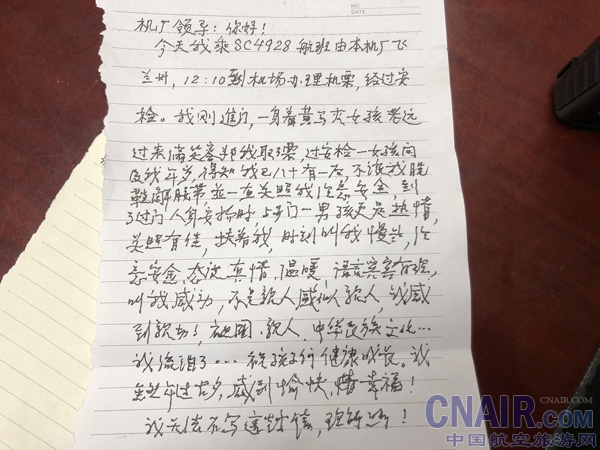 NO.
DATE
机厂领导：你好！
今天我乘SC4928航班由本机厂飞
兰州，12:10到机场办理机票，经过安
检。我刚进门，一身着黄马夹女孩老远
过来满笑容帮我取票，过安检一女孩问
及我年岁，得知我已八十有一后，不让我脱
鞋解腰带，並一直关照我注意安全，到
了过门人身安检时，5号门一男孩更是热情，
关照有佳，扶着我，时刻叫我慢点，注
意安全，态度真情，温暖，语言
叫我感动，不是亲人感似亲人，我感
到亲切！祖国、亲人、中华民族文化…
我流泪了…祝孩子们健康成长。我
虽年过古夕，感到愉快，幸福！
我无法不写这封信，
CNAIR.COM
CNAIR.COM
中国航空旅游网